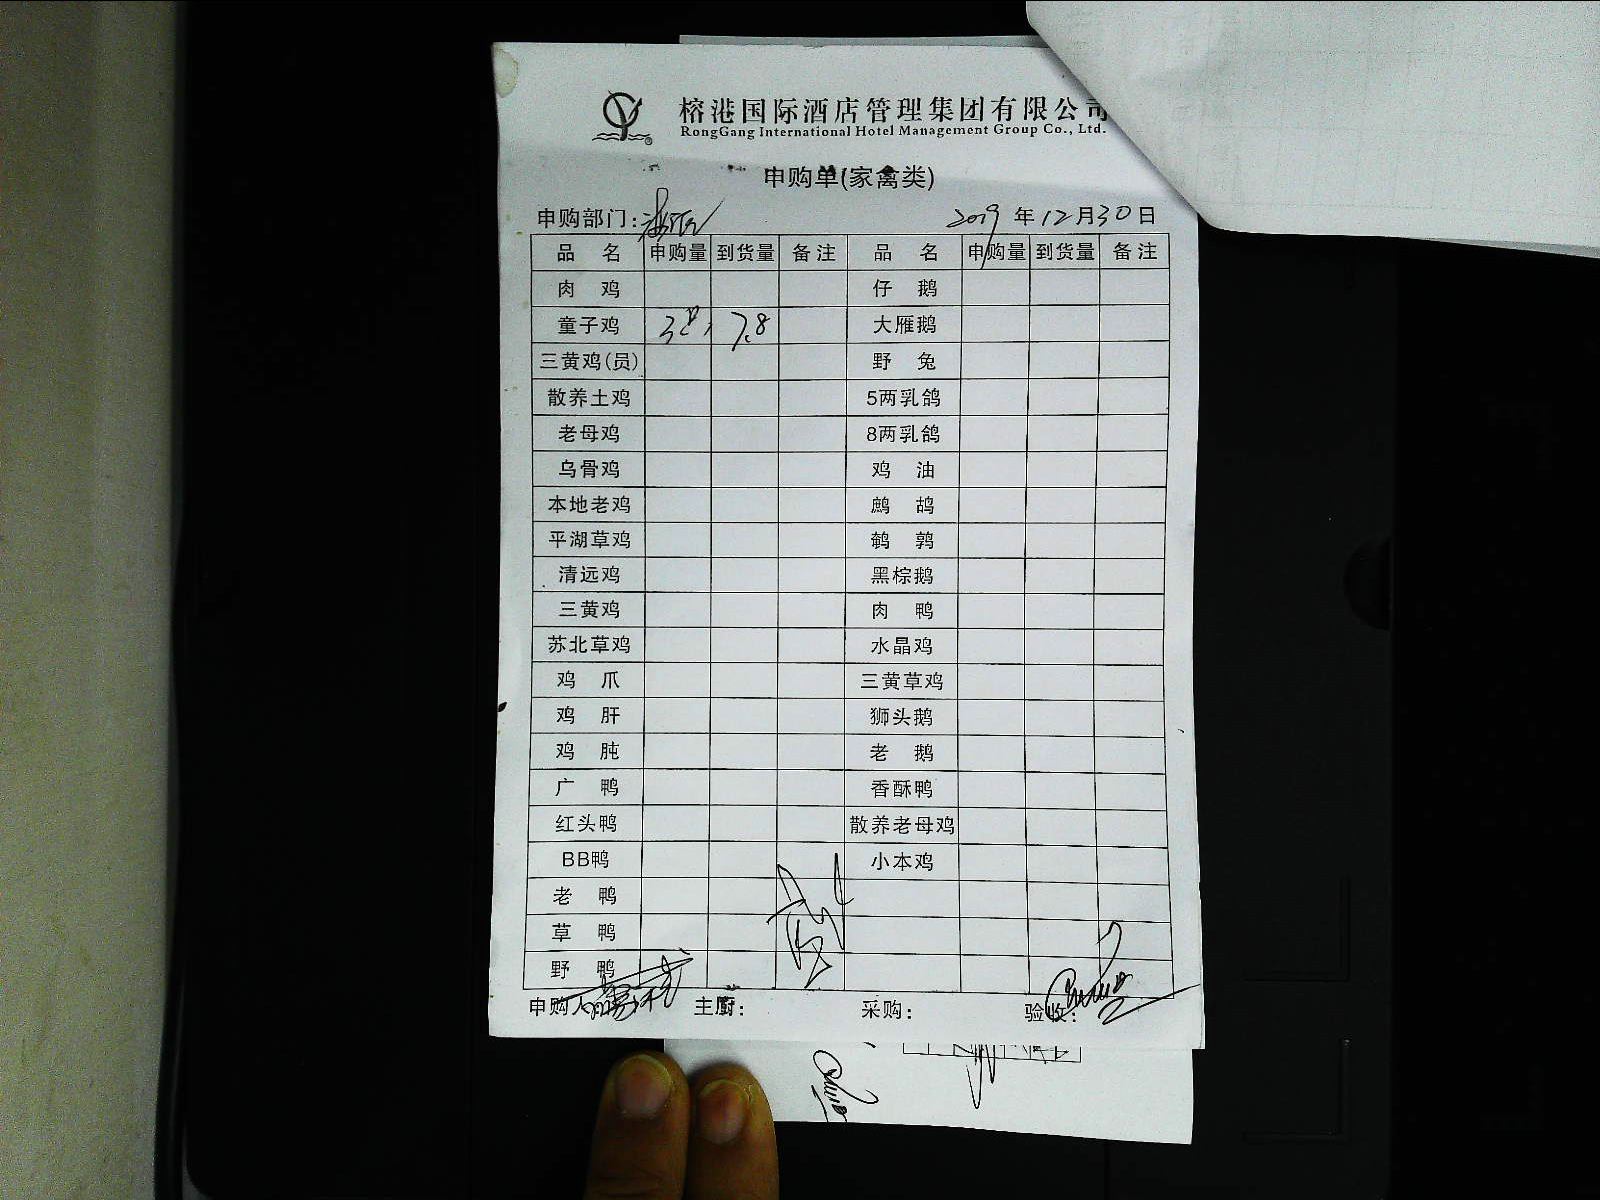 榕港国际酒店管理集团有限公司
RongGang International Hotel Management Group Co., Ltd.
申购单(家禽类)
申购部门: 2019 年 12 月 30 日
品 名 申购量 到货量 备注 品 名 申购量 到货量 备注
肉 鸡 仔 鹅
童子鸡 3只 7.8 大雁鹅
三黄鸡(员) 野 兔
散养土鸡 5两乳鸽
老母鸡 8两乳鸽
乌骨鸡 鸡 油
本地老鸡 鹧 鸪
平湖草鸡 鹌 鹑
清远鸡 黑棕鹅
三黄鸡 肉 鸭
苏北草鸡 水晶鸡
鸡 爪 三黄草鸡
鸡 肝 狮头鹅
鸡 肫 老 鹅
广 鸭 香酥鸭
红头鸭 散养老母鸡
BB鸭 小本鸡
老 鸭
草 鸭
野 鸭
申购人 主厨: 采购: 验收: